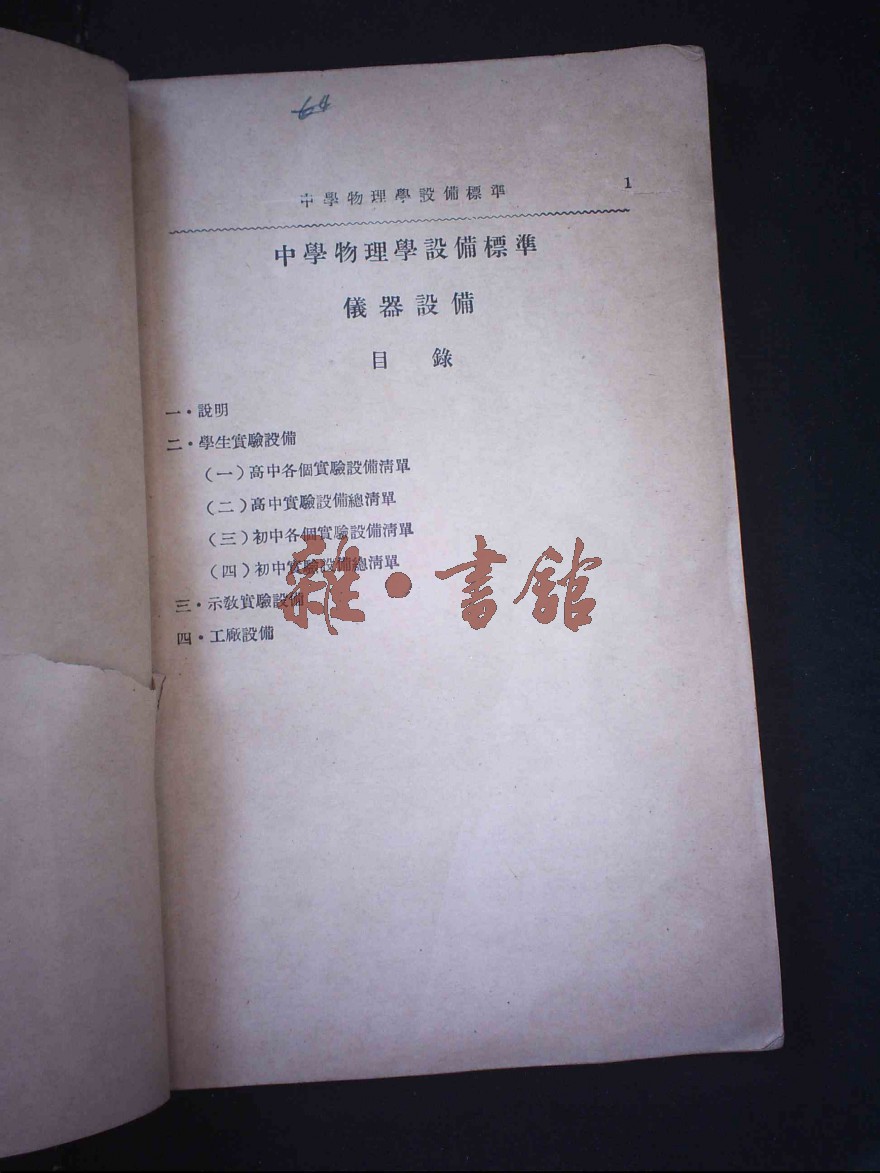 中學物理學設備標準 1
中學物理學設備標準
儀器設備
目 錄
一・說明
二・學生實驗設備
(一)高中各個實驗設備清單
(二)高中實驗設備總清單
(三)初中各個實驗設備清單
(四)初中實驗設備總清單
三・示教實驗設備
四・工廠設備
雜・書館